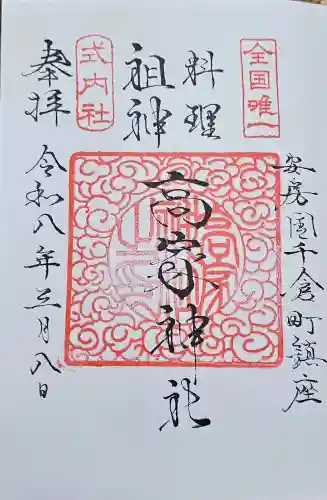 全国唯一
安房國千倉町鎮座
料理
祖神
高家神社
式内社
奉拝
令和八年三月八日